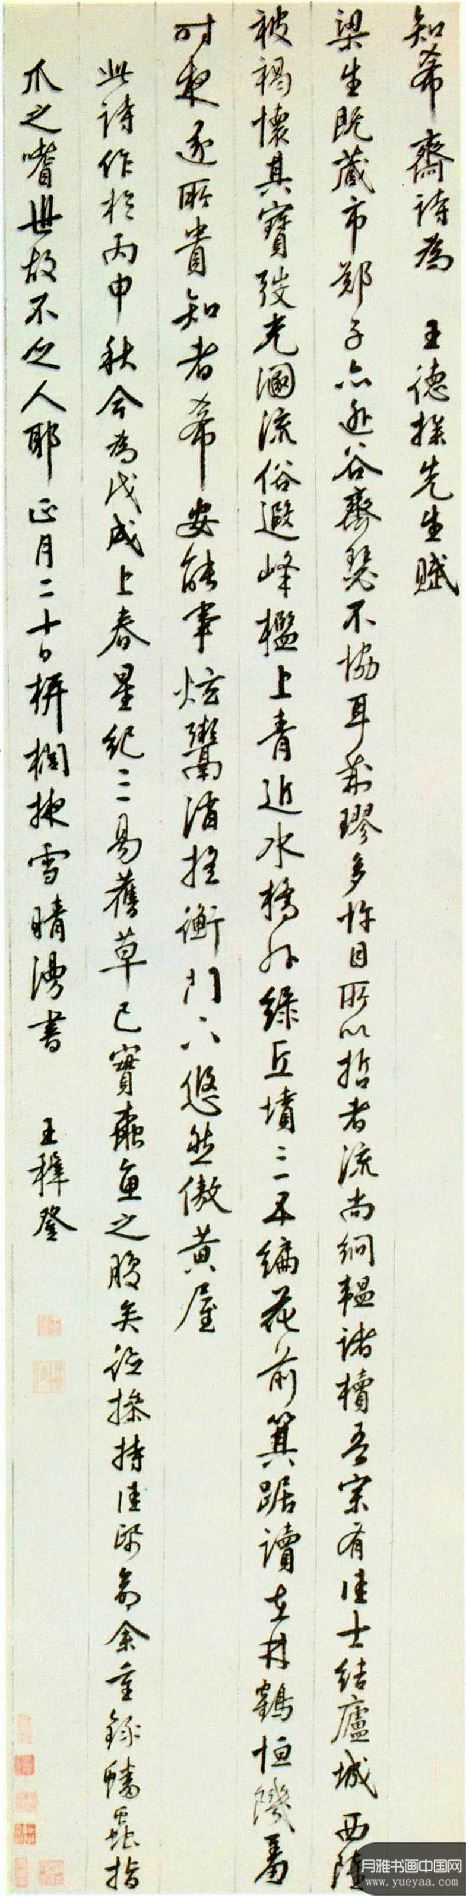 知希齋詩為 王德操先生賦
梁生既藏市鄭子亦逃谷齊瑟不協耳荊璆多忤目所以哲者流尚絅韞諸櫝吾宗有佳士結廬城西
被褐懷其寶發光溷流俗遐峰檻上青近水橋外綠丘墳三五編花前箕踞讀在林鶴恒饑
時 所貴知者希安能事炫鬻消搖衡門下悠然傲黃屋
此詩作於丙申秋今為戊戌上春星紀三易舊草已實蠹魚之腹矣德操持佳紙命余重錄 指
爪之嗜世故不乏人耶正月二十日栟櫚掖雪晴漫書 王穉登
月雅书画中国网
www.yueyaa.com